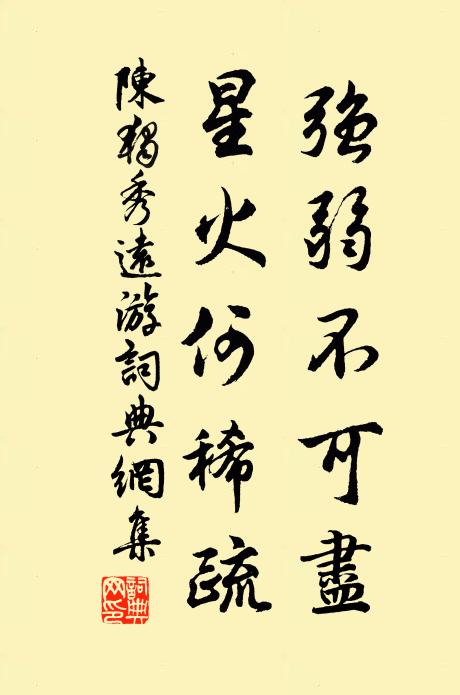 強弱不可盡
星火何稀疏
陳獨秀遠游詞典網集
詞典
网印